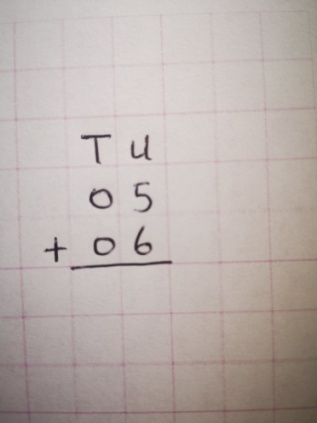 T U
0 5
+ 0 6